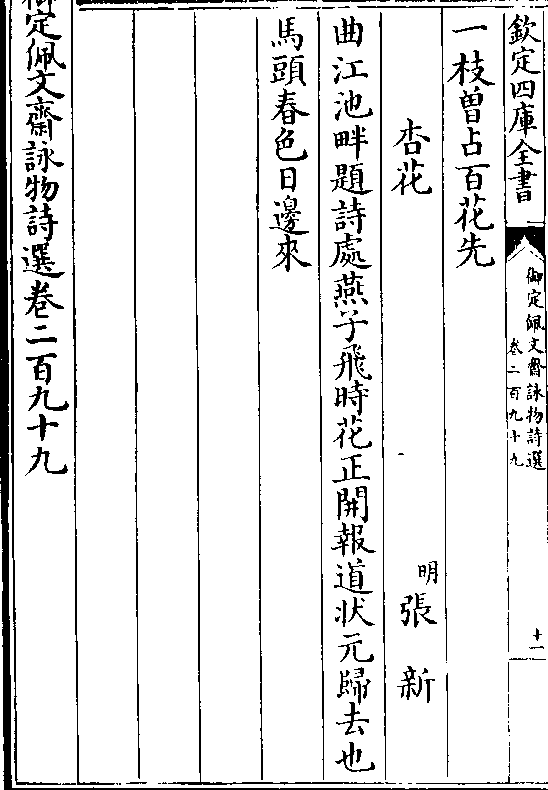 欽定四庫全書
御定佩文齋詠物詩選
卷二百九十九
十一
一枝曽占百花先
杏花
明
張新
曲江池畔題詩處燕子飛時花正開報道狀元歸去也
馬頭春色日邊來
御定佩文齋詠物詩選卷二百九十九